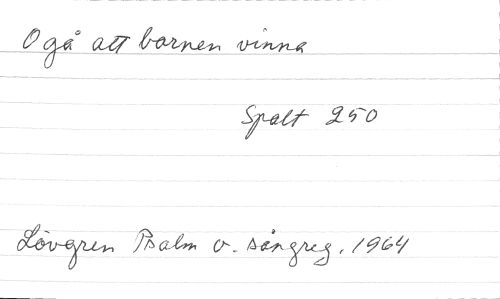 O gå att barnen vinna
Spalt 250
Lövgren Psalm o. sångreg. 1964